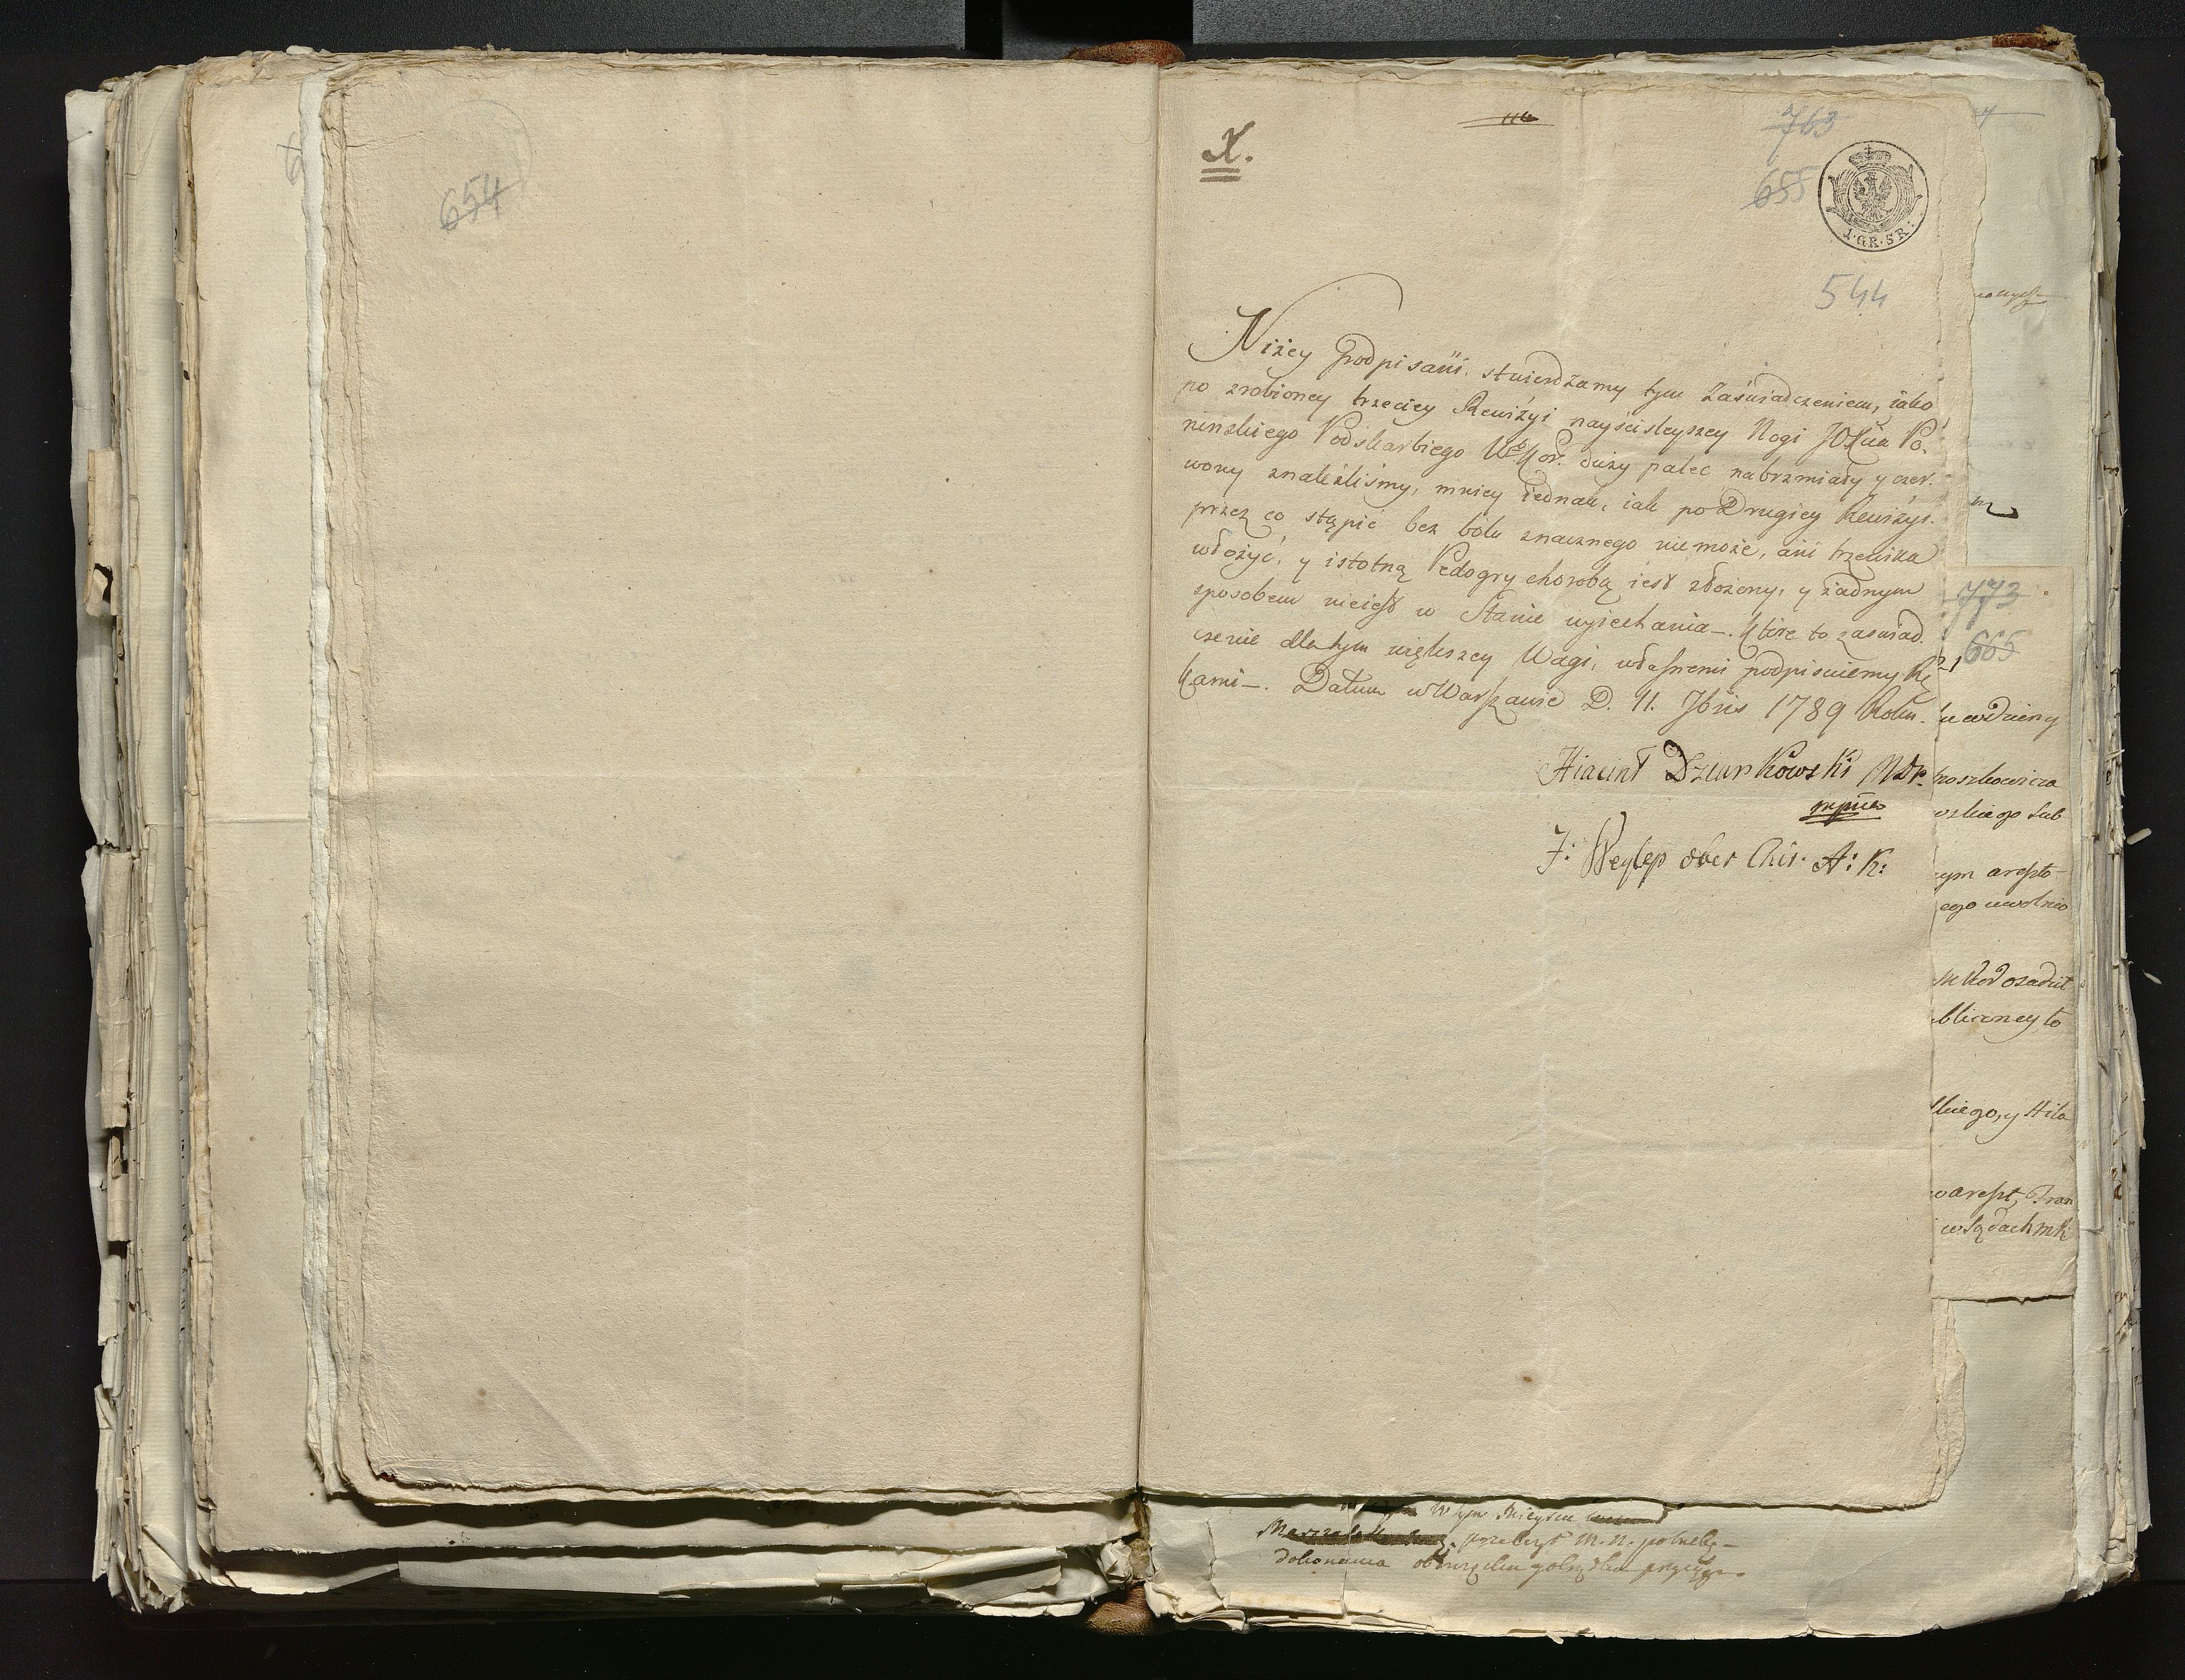 654
X.
763
655
1·GR·SR·
544
Niżey Podpisani stwierdzamy tym Zaświadczeniem, iako
po zrobioney trzeciey Rewizyi nayściśleyszey Nogi JOXcia Po-
nińskiego Podskarbiego WgoKor. duży palec nabrzmiały y czer-
wony znaleźliśmy, mniey iednak, iak po Drugiey Rewizyi.
przez co stąpić bez bólu znacznego niemoże, ani trzewika
włożyć, y istotną Pedogry chorobą iest złożony, y żadnym
sposobem nieiest w Stanie wyiechania—. Które to zaswiad-
czenie dla tym większey Wagi, własnemi podpisuiemy Rę
kami—. Datum w Warszawie D. 11. 7bris 1789 Roku.
Hiacint Dziarkowski MDr.
mpria
F: Weyler ober Chir: A: K:
773
665
21
oszkowicza
skiego lub
ym areszto-
ego uwolnio
bliczney to
skiego, y Hila
w areszt, Fran
w Sądach mk
W tym Mieyscu
przełożył M. N. potrzebę
dokonania obowiązku y obrządku przysięgi